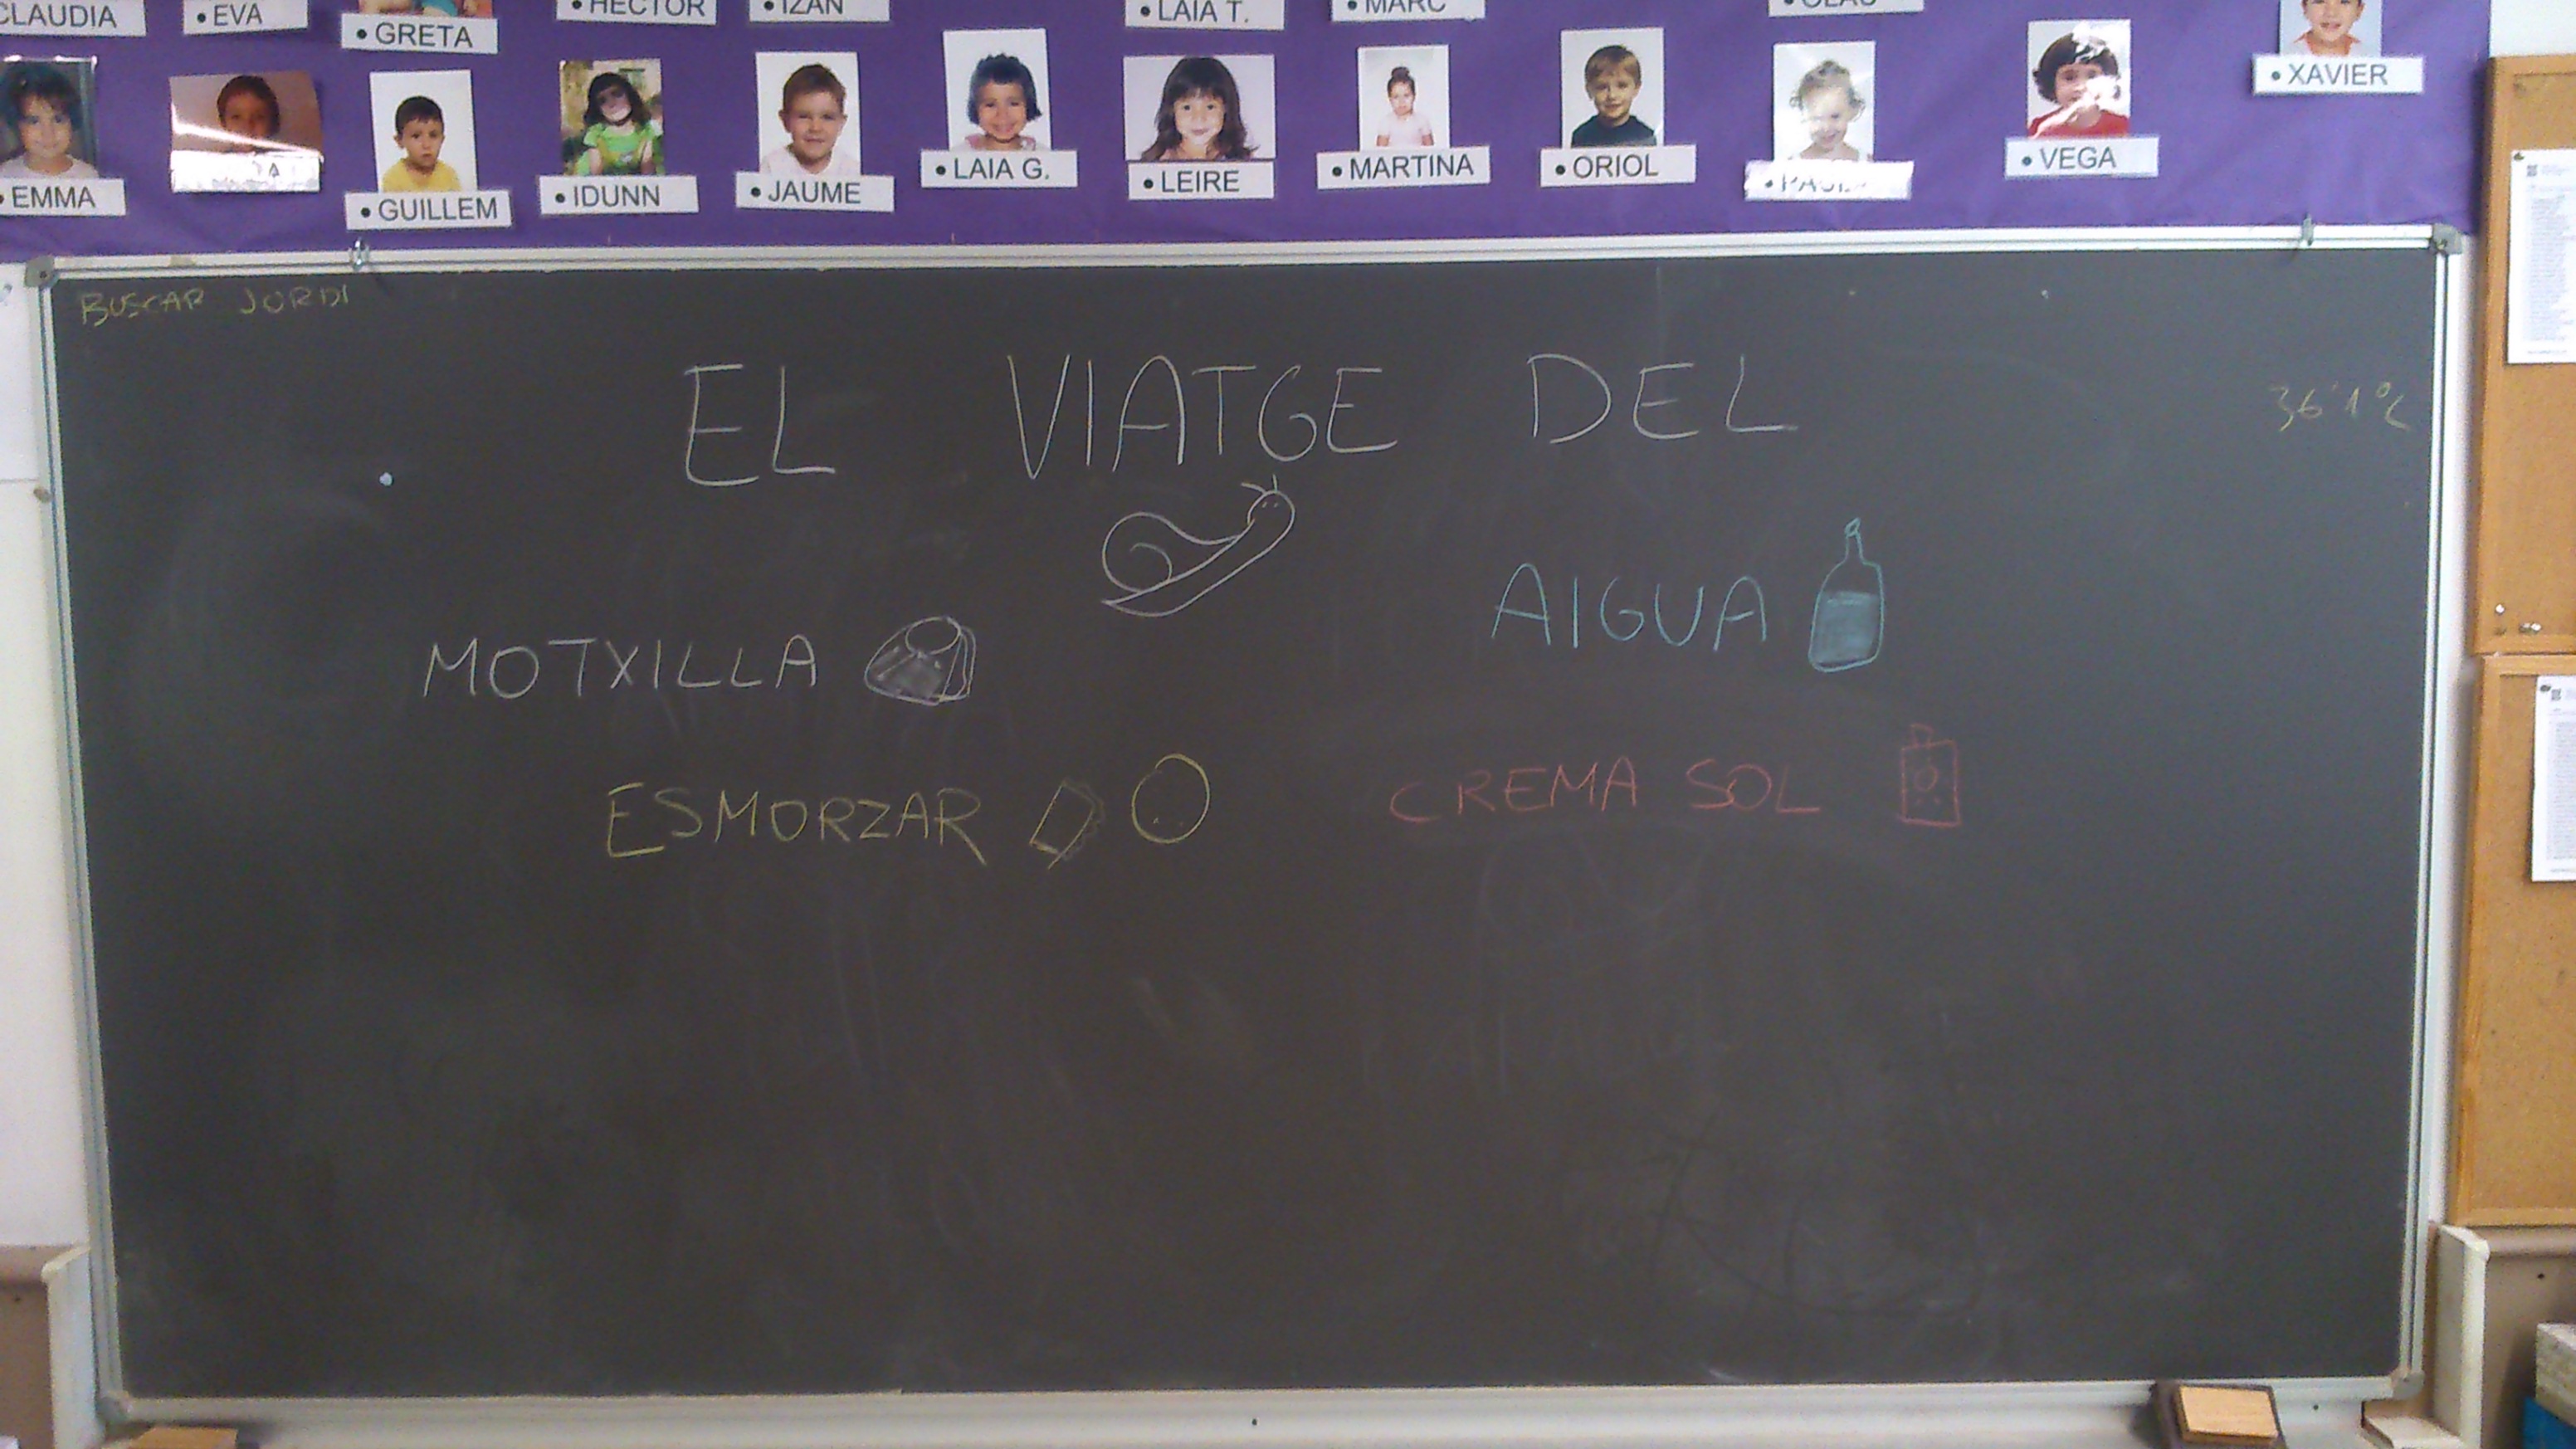 CLAUDIA
• EVA
• GRETA
• HÈCTOR
• IZAN
• LAIA T.
• MARC
• XAVIER
• EMMA
• GUILLEM
• IDUNN
• JAUME
• LAIA G.
• LEIRE
• MARTINA
• ORIOL
• VEGA
BUSCAR JORDI
EL VIATGE DEL
36'1°C
MOTXILLA
AIGUA
ESMORZAR
CREMA SOL